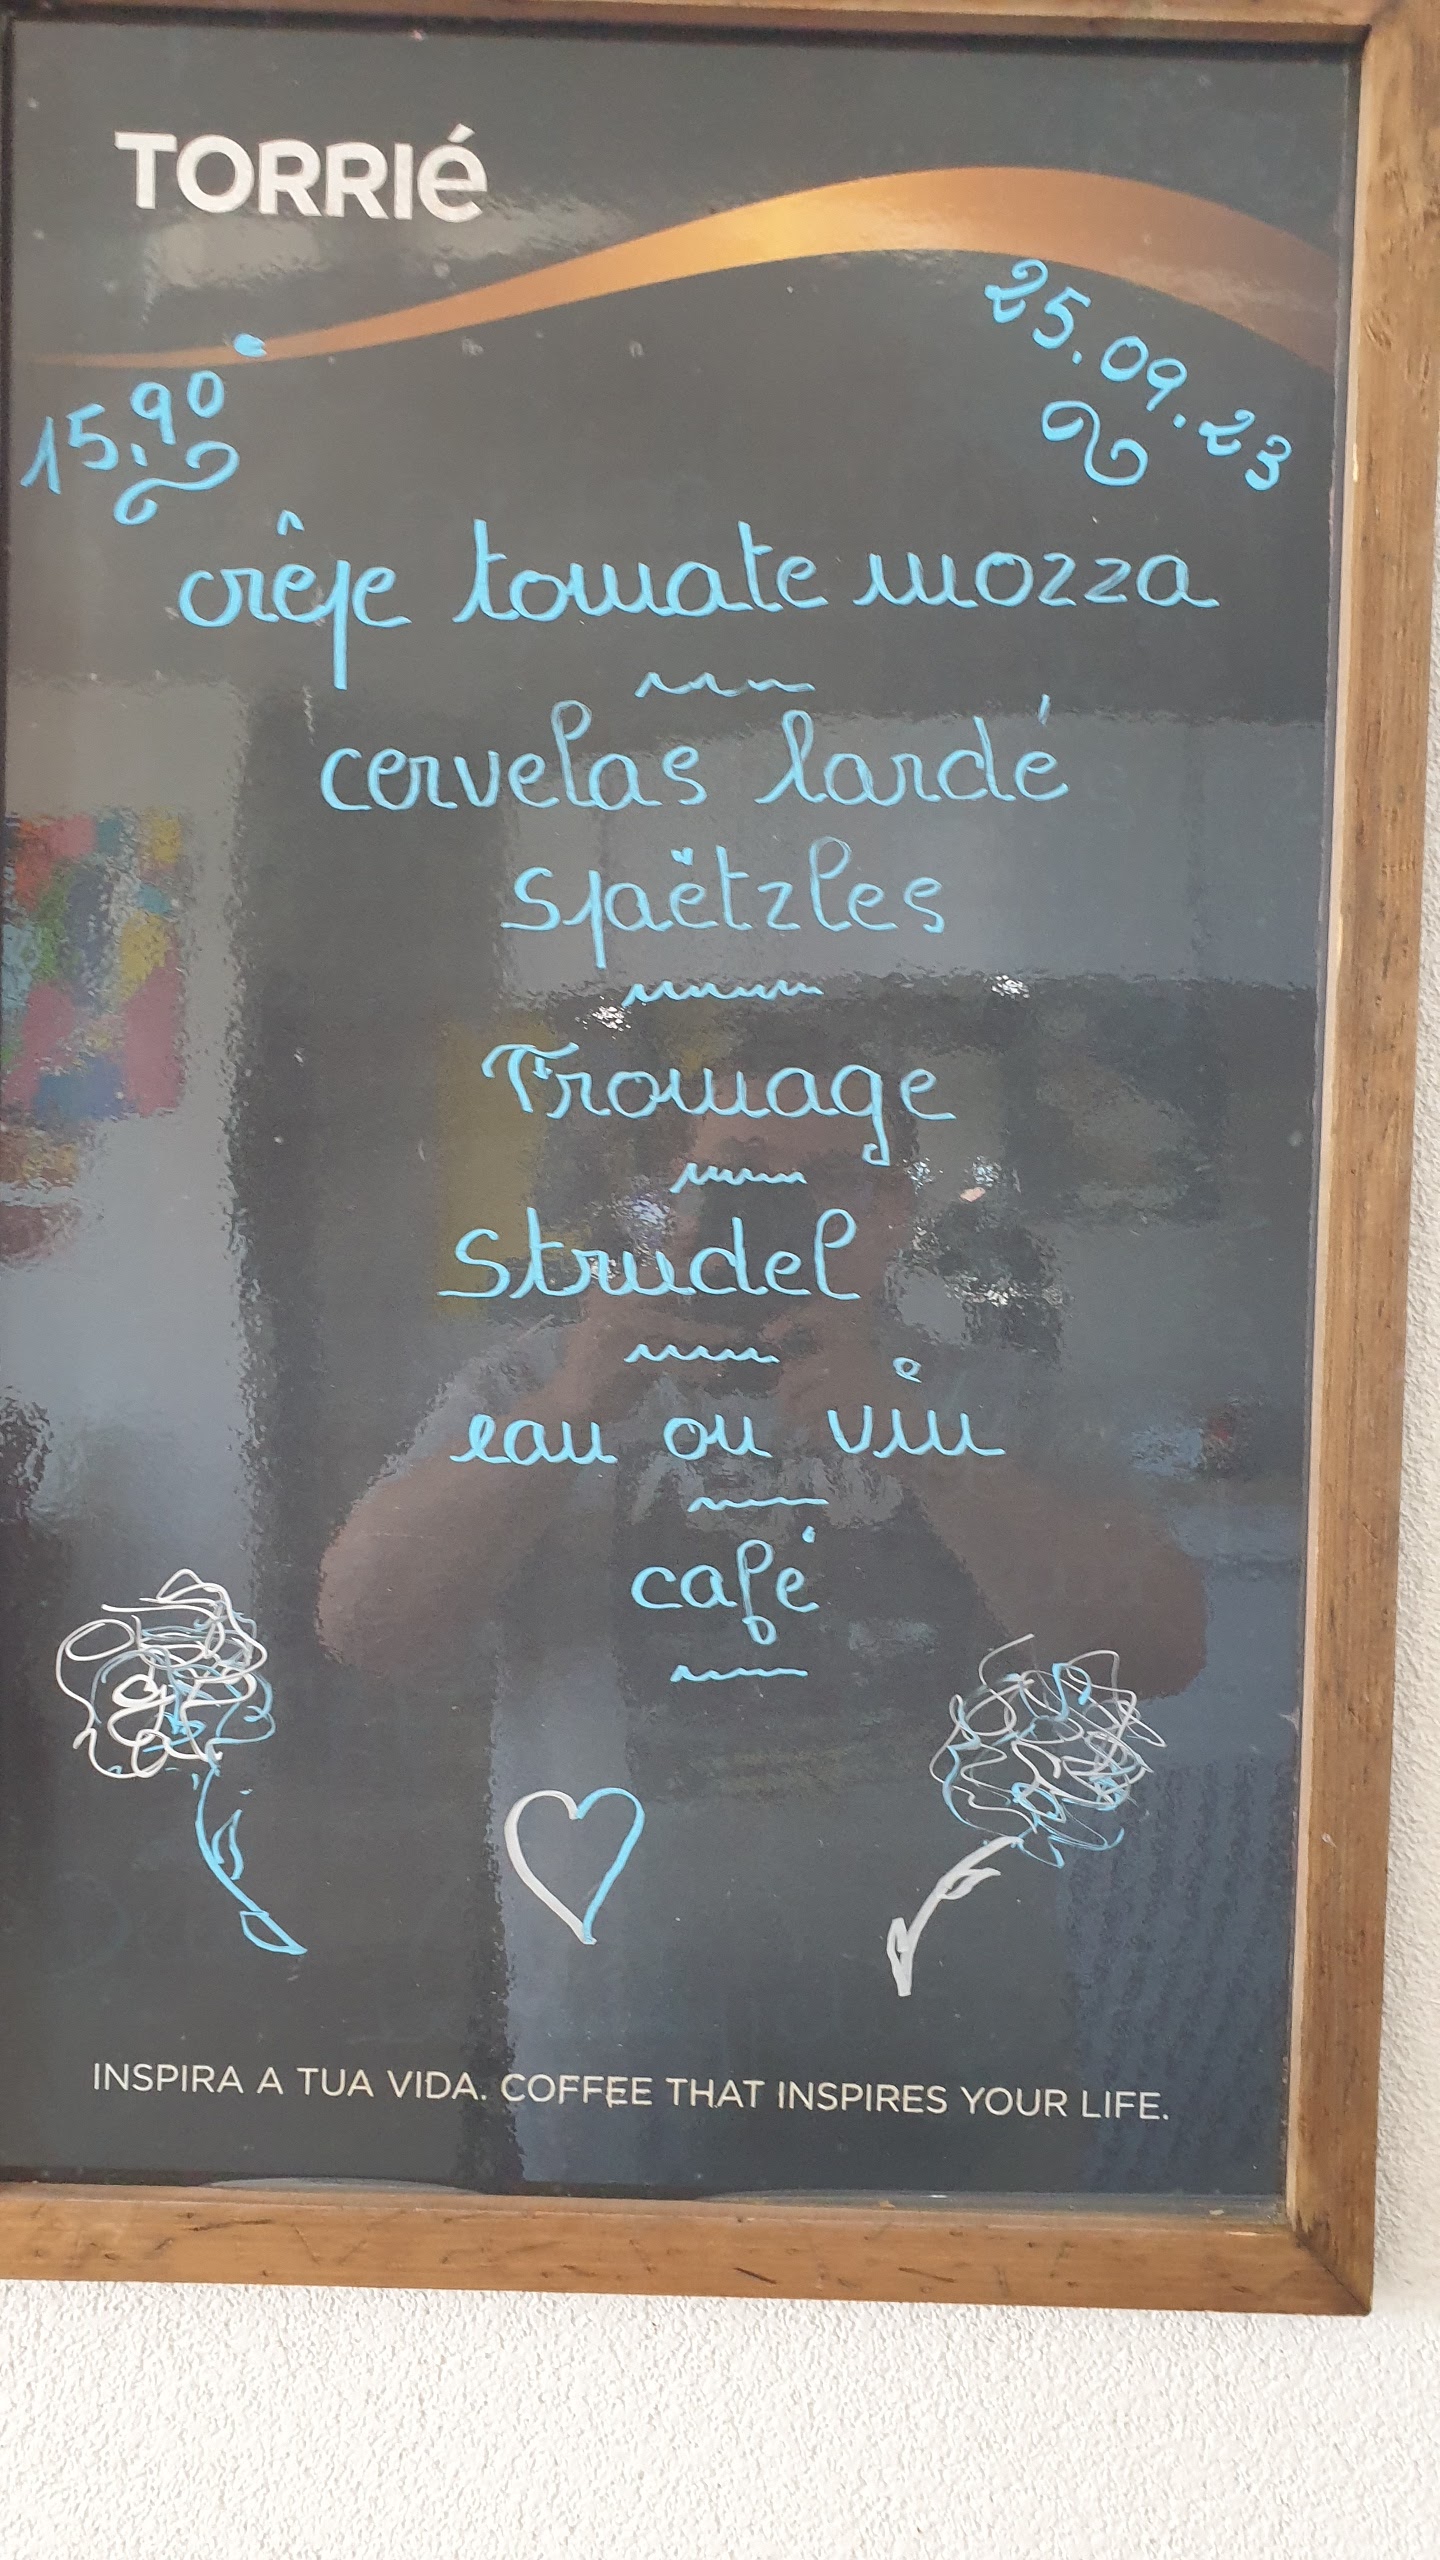 TORRIé
15.90
25.09.23
crêpe tomate mozza
cervelas lardé
spaëtzles
Fromage
Strudel
eau ou vin
café
INSPIRA A TUA VIDA. COFFEE THAT INSPIRES YOUR LIFE.